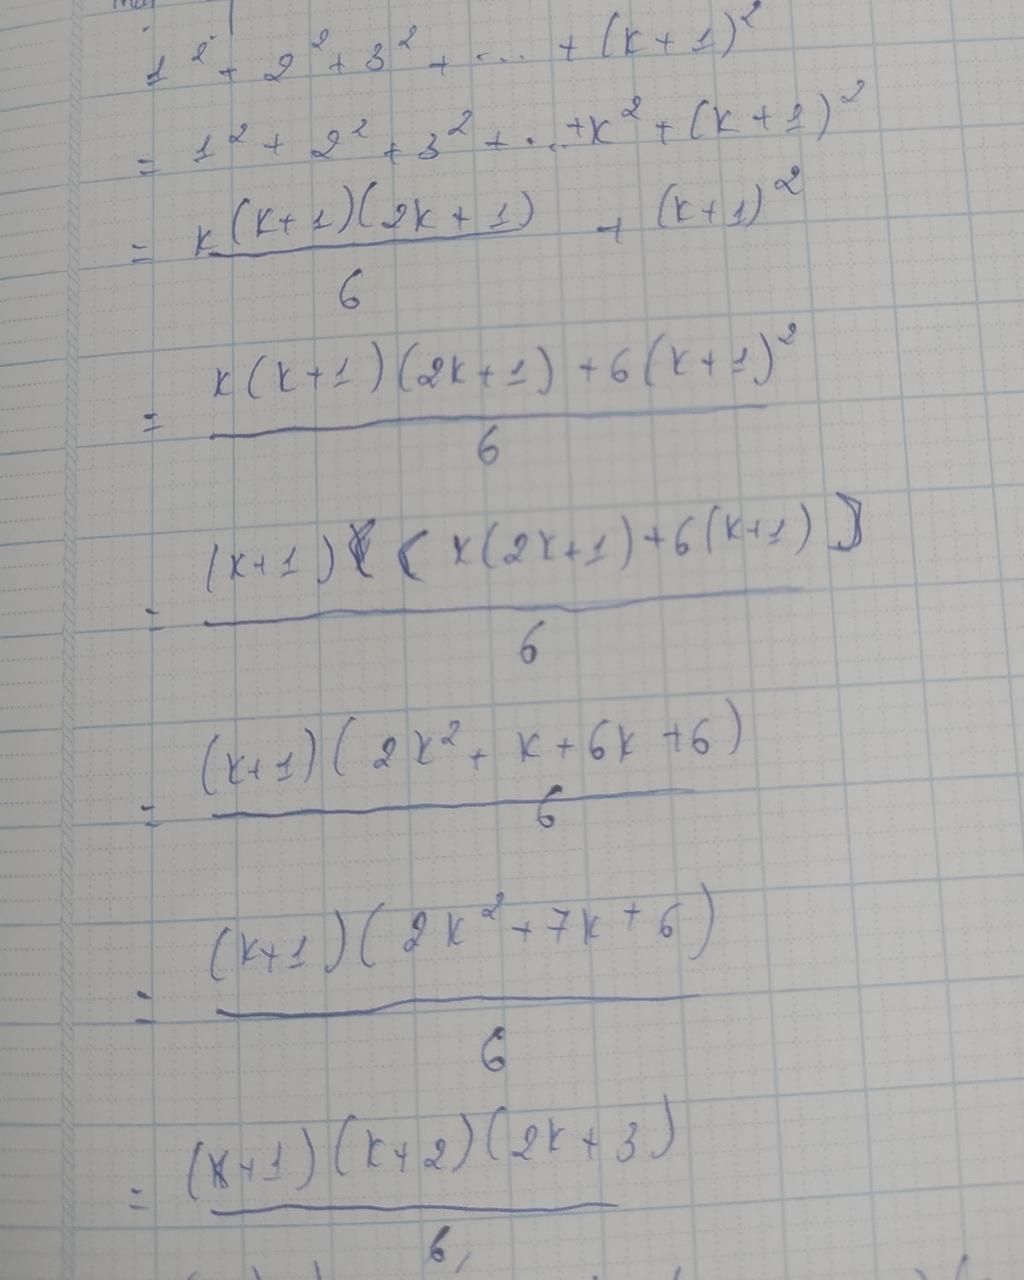 1² + 2² + 3² + ... + (k+1)²
= 1² + 2² + 3² + ... + k² + (k+1)²
= k(k+1)(2k+1) + (k+1)²
6
= k(k+1)(2k+1) + 6(k+1)²
6
= (k+1)((k(2k+1)+6(k+1))
6
= (k+1)(2k² + k + 6k + 6)
6
= (k+1)(2k² + 7k + 6)
6
= (k+1)(k+2)(2k+3)
6,